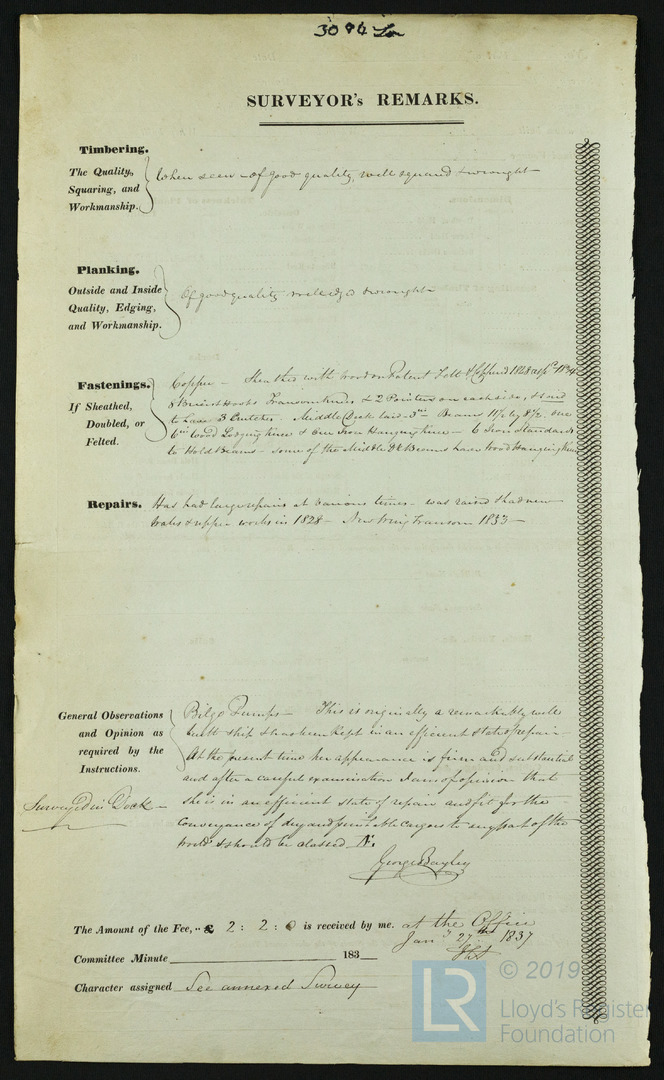 3094 Lon
SURVEYOR's REMARKS.
Timbering.
The Quality,
Squaring, and
Workmanship.
When seen - of good quality, well squared & wrought -
Planking.
Outside and Inside
Quality, Edging,
and Workmanship.
Of good quality well edged & wrought -
Fastenings.
If Sheathed,
Doubled, or
Felted.
Copper - Sheathed with wood on Patent Felt & Coppered 1828 1834
8 Breast Hooks Transom Knees & 2 Pointers on each side, &
3 Crutches - Middle Deck laid - 3in - Beams 11½ by 8½ - one
6in Wood Lodging Knee & one Iron Hanging Knee - 6 Iron Standards
to Hold Beams - some of the Middle Dk Beams have Wood Hanging Knees
Repairs.
Has had large repairs at various times - was raised & had new
wales & upper works in 1828 - New Wing Transom 1833 -
General Observations
and Opinion as
required by the
Instructions.
Surveyed in Dock -
Bilge Pumps - This is originally a remarkably well
built ship & has been kept in an efficient state of repair -
At the present time her appearance is firm and substantial
and after a careful examination I am of opinion that
she is in an efficient state of repair and fit for the
conveyance of dry and perishable cargoes to any part of the
World & should be classed
George Bayley
The Amount of the Fee, ·· £ 2 : 2 : 0 is received by me. at the Office
Jany 27th 1837
Committee Minute 183
Character assigned See annexed Survey
LR © 2019
Lloyd's Register
Foundation